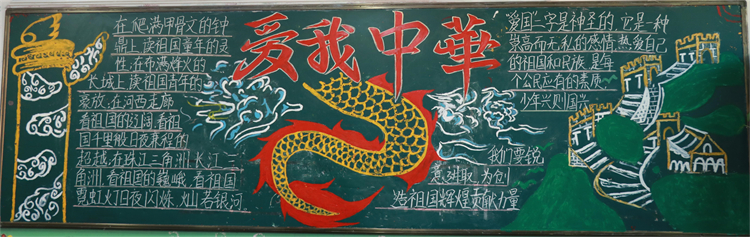 爱我中華
在爬满甲骨文的钟
鼎上读祖国童年的灵
性，在布满烽火的
长城上读祖国青年的
豪放，在河西走廊
看祖国的辽阔，看祖
国千里驶日夜兼程的
超越，在珠江三角洲，长江三
角洲，看祖国的巍峨，看祖国
霓虹灯日夜闪烁，灿若银河
爱国二字是神圣的，它是一种
崇高而无私的感情，热爱自己
的祖国和民族，是每
个公民应有的素质
少年兴则国兴
我们要锐
意进取，为创
造祖国辉煌贡献力量